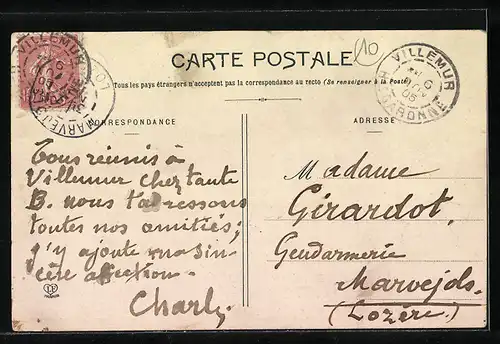 CARTE POSTALE
10
Tous les pays étrangers n'acceptent pas la correspondance au recto (Se renseigner à la Poste)
CORRESPONDANCE
ADRESSE
VILLEMUR
VILLEMUR
Hte GARONNE
MARVEJOLS
Tous réunis à
Villemur chez tante
B. nous t'adressons
toutes nos amitiés;
j'y ajoute ma sin-
cère affection.
Charly
Madame
Girardot,
Gendarmerie
Marvejols.
(Lozère)